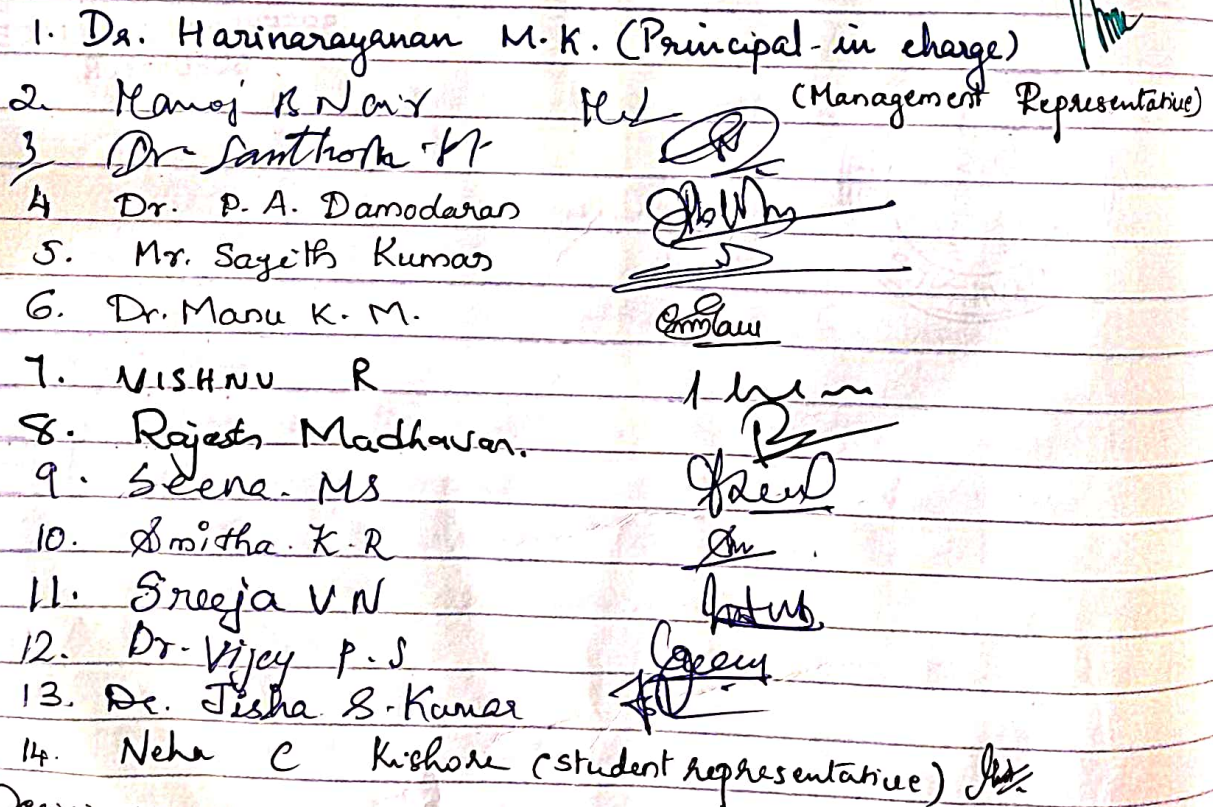 1. Dr. Harinarayanan M.K. (Principal-in charge)
2. Manoj B Nair (Management Representative)
3 Dr Santhosh
4 Dr. P.A. Damodaran
5. Mr. Sajith Kumar
6. Dr. Manu K. M.
7. VISHNU R
8. Rajesh Madhavan.
9. Seena. MS
10. Smitha. K.R
11. Sreeja V N
12. Dr. Vijey P.S
13. Dr. Jisha S. Kumar
14. Neha C Kishore (student representative)